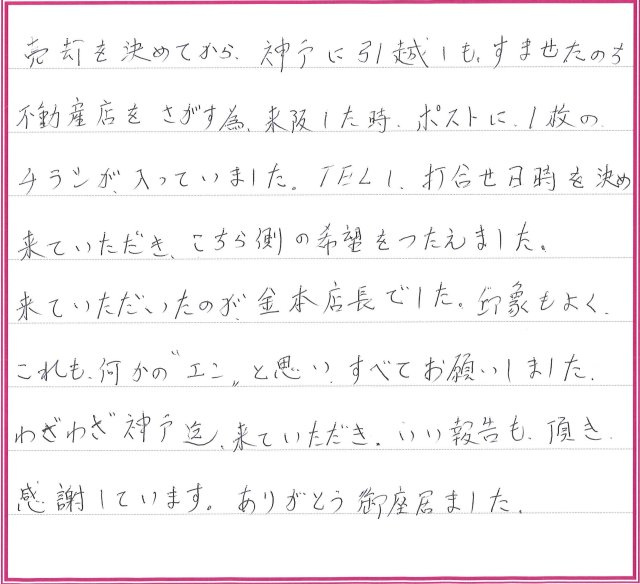 売却を決めてから、神戸に引越しも、すませたのち
不動産店を さがす為、来阪した時、ポストに、1枚の
チラシが、入っていました。TELし、打合せ日時を決め
来ていただき、こちら側の希望をつたえました。
来ていただいたのが、金本店長でした。印象もよく、
これも、何かの〝エン〟と思い、すべてお願いしました。
わざわざ神戸迄、来ていただき、いい報告も、頂き
感謝しています。ありがとう御座居ました。